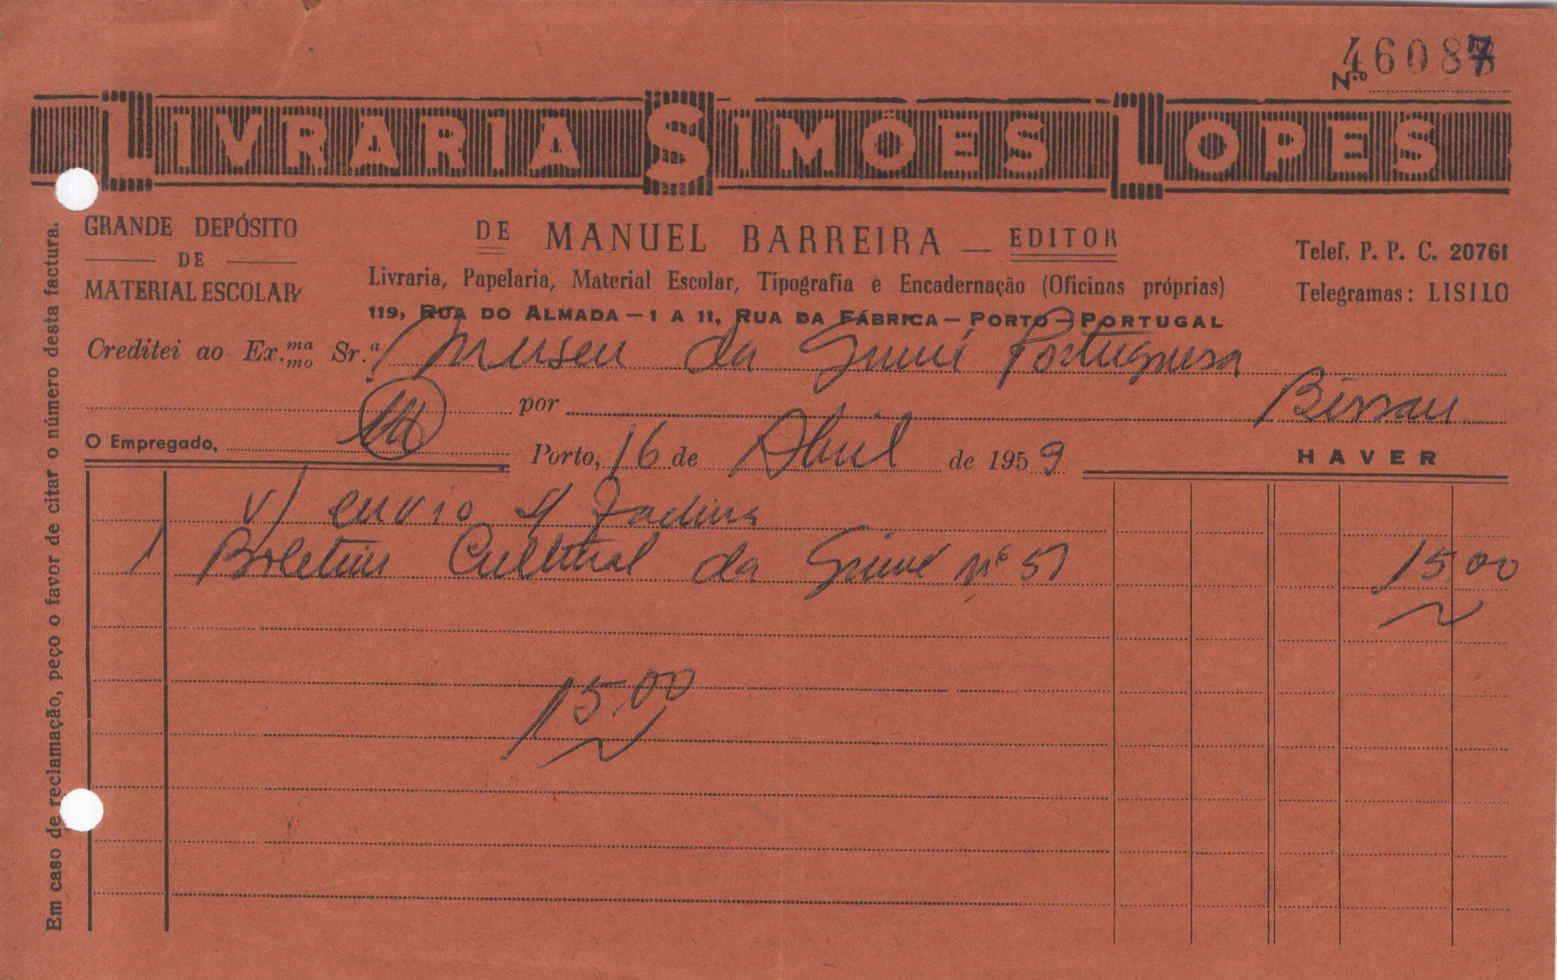 Nº 46087
LIVRARIA SIMÕES LOPES
GRANDE DEPÓSITO
DE
MATERIAL ESCOLAR
DE MANUEL BARREIRA — EDITOR
Livraria, Papelaria, Material Escolar, Tipografia e Encadernação (Oficinas próprias)
119, RUA DO ALMADA — 1 A 11, RUA DA FÁBRICA — PORTO — PORTUGAL
Telef. P. P. C. 20761
Telegramas: LISILO
Creditei ao Ex.ma mo Sr.a Museu da Guiné Portuguesa
por Bissau
O Empregado,
Porto, 16 de Abril de 1959
HAVER
v/ envio s/ factura
1 Boletim Cultural da Guiné nº 51 15.00
15.00
Em caso de reclamação, peço o favor de citar o número desta factura.